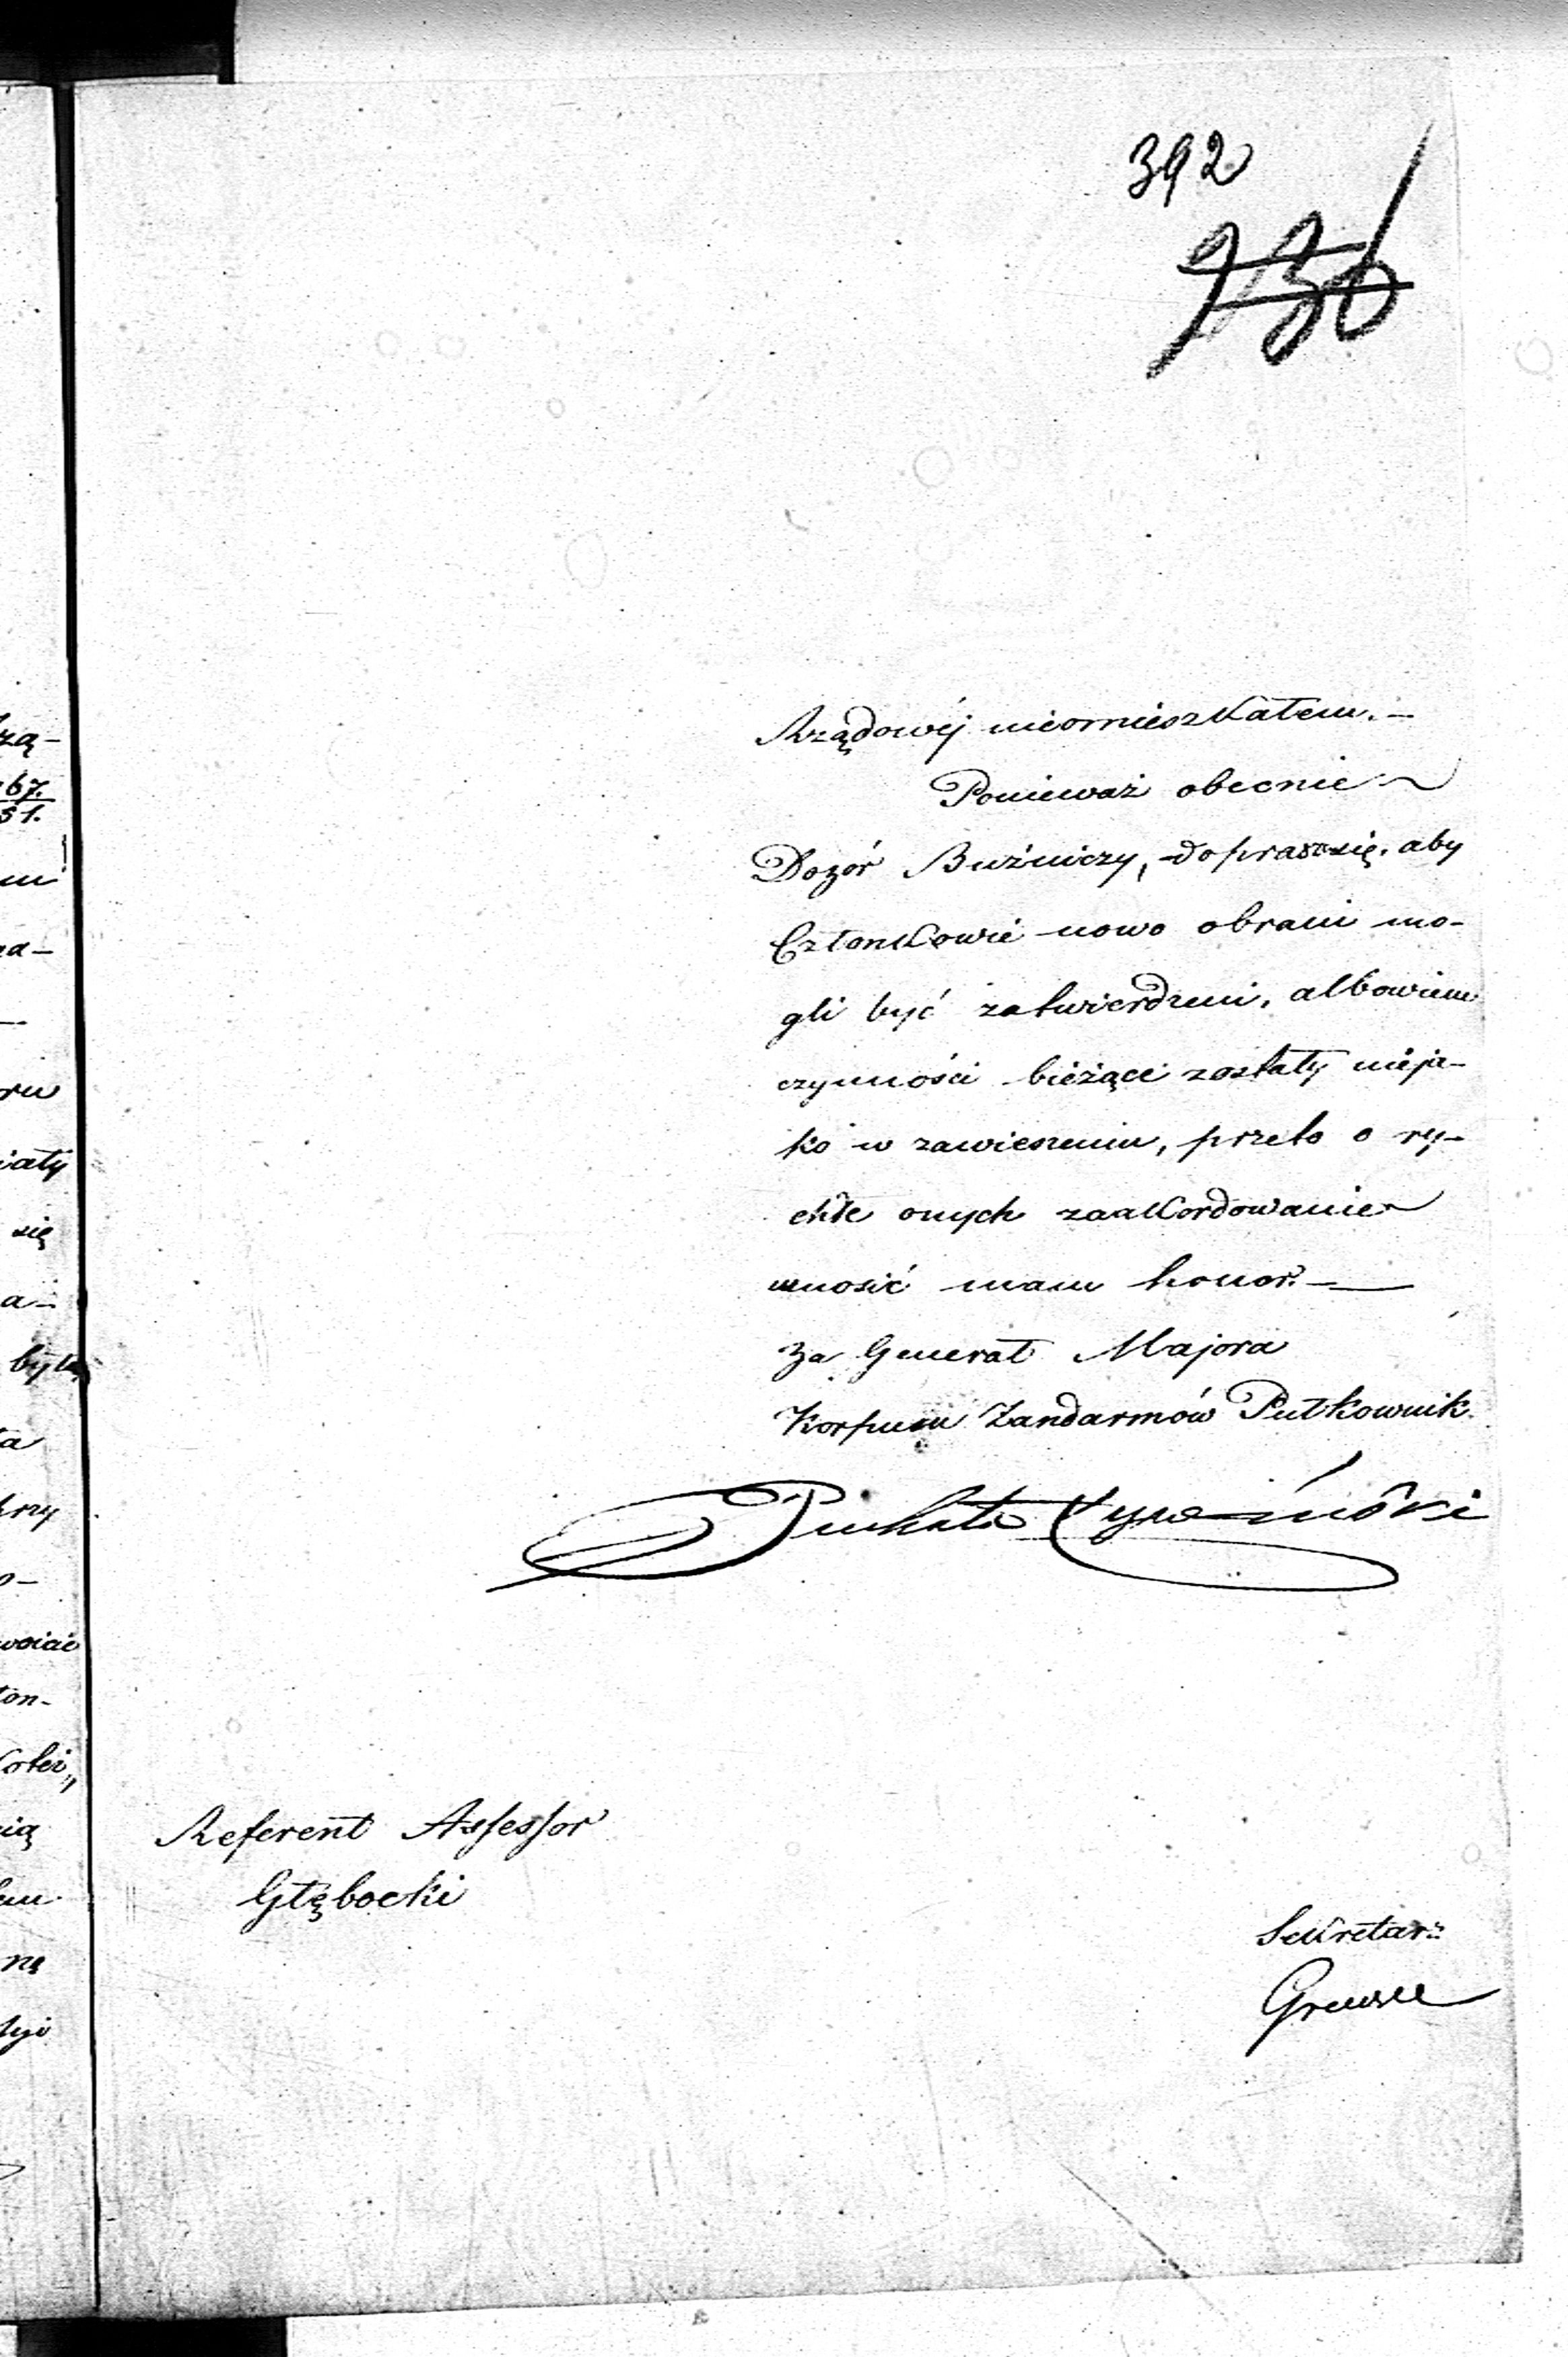 392
236
Rządowéj nieomieszkałem. —
Ponieważ obecnie
Dozór Bużniczy, doprasza się, aby
Członkowie nowo obrani mo-
gli być zatwierdzeni, albowiem
czynności bieżące zostały nieja-
ko w zawieszeniu, przeto o ry-
chłe onych zaakordowanie
wnosić mam honor. —
Za Generał Majora
Korpusu Żandarmów Pułkownik
Referent Assessor
Głębocki
Sekretarz
zą-
67.
51.
iały
się
a-
była
ton-